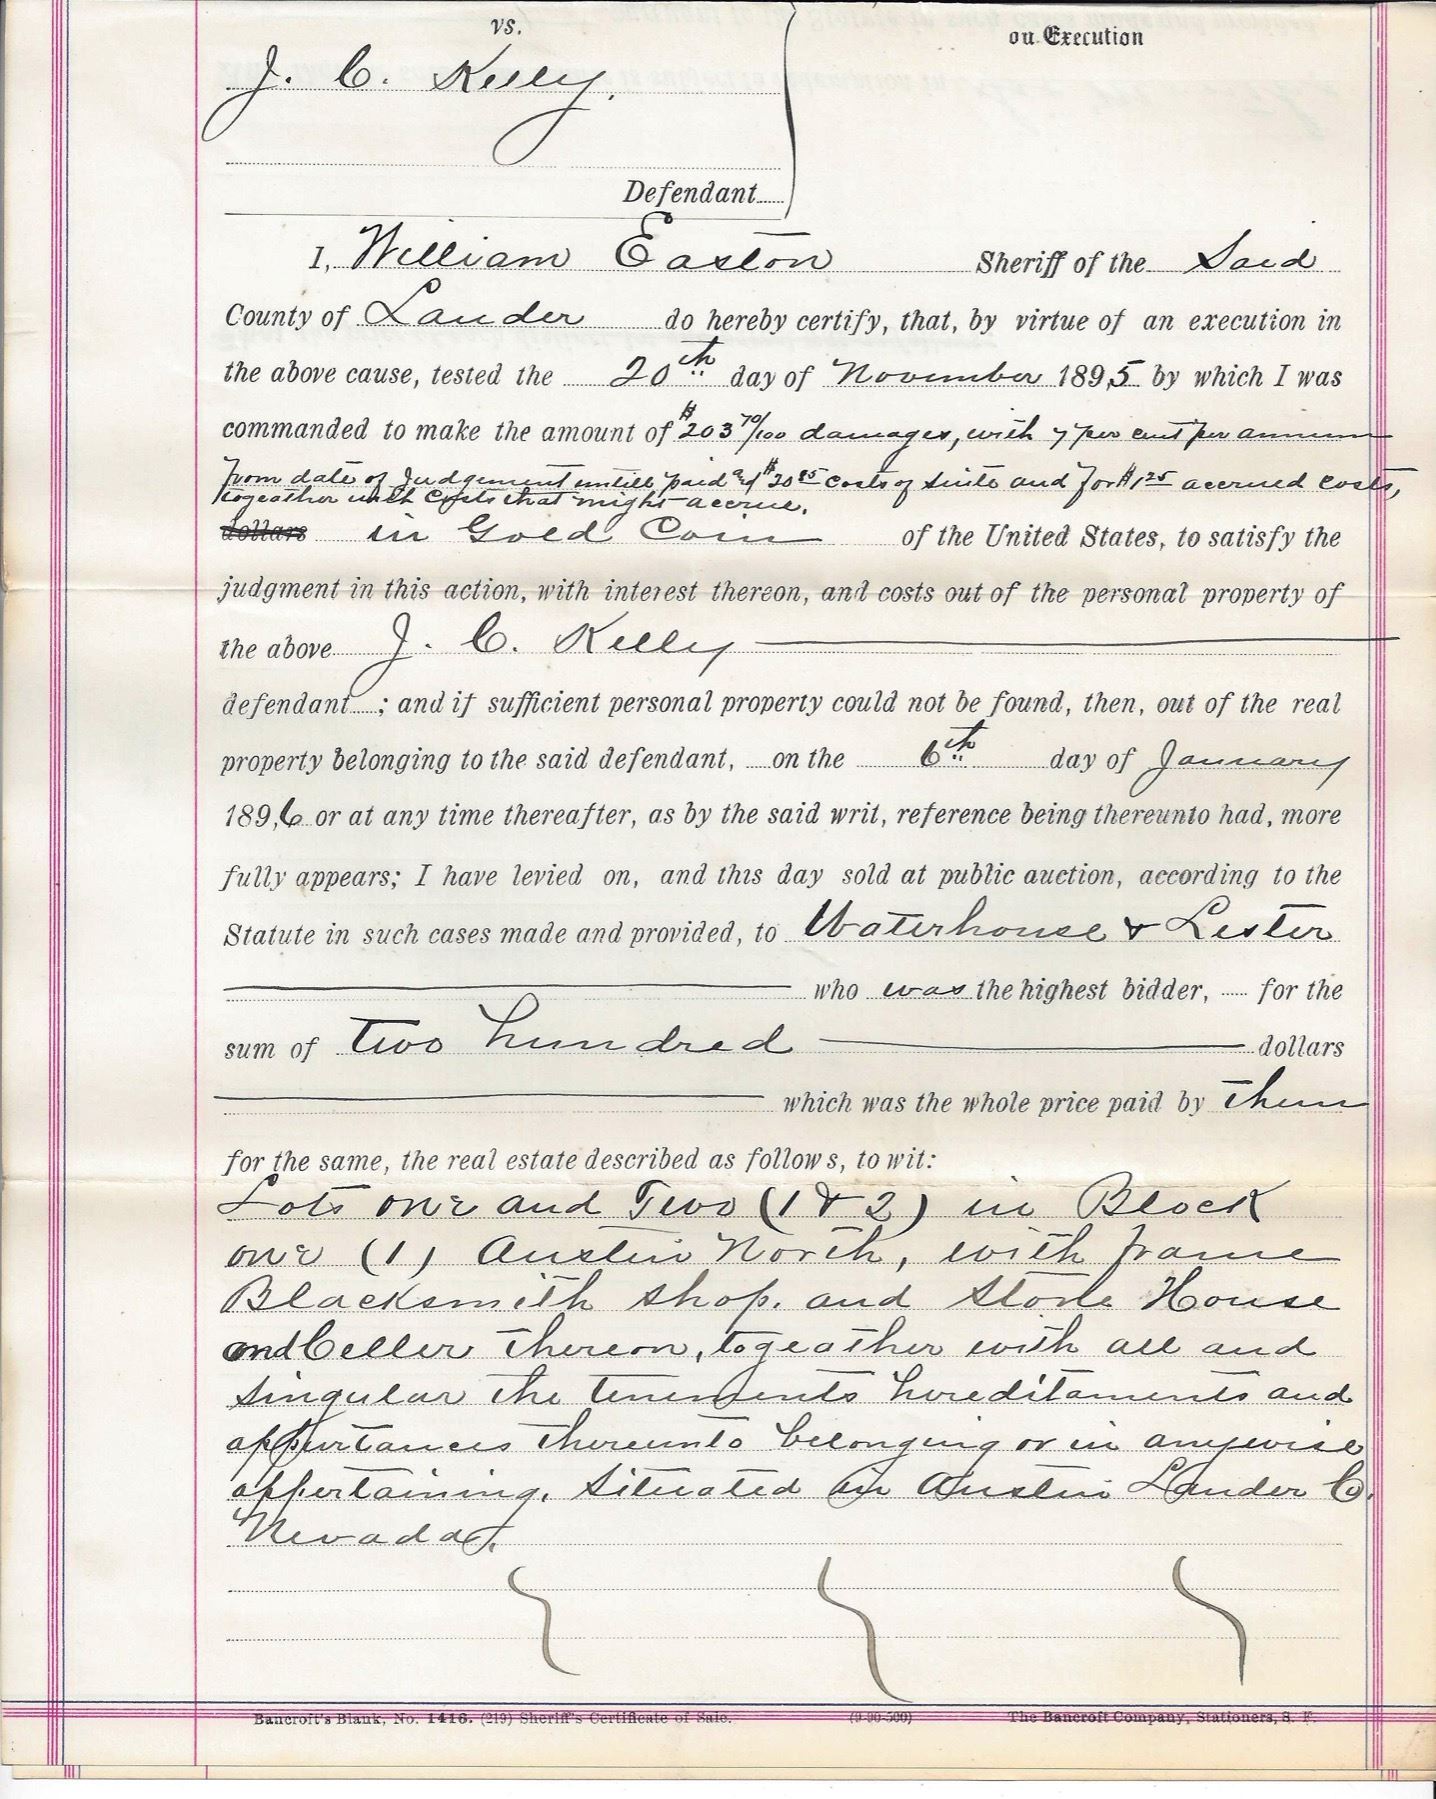 vs.
on Execution
J. C. Kelly.
Defendant
I, William Easton Sheriff of the Said
County of Lander do hereby certify, that, by virtue of an execution in
the above cause, tested the 20th day of November 1895 by which I was
commanded to make the amount of $203 70/100 damages, with 7 per cent per annum
from date of Judgement untill paid and $20 85 costs of suite and for $1 25 accrued costs,
togeather with costs that might accrue.
dollars in Gold Coin of the United States, to satisfy the
judgment in this action, with interest thereon, and costs out of the personal property of
the above J. C. Kelly
defendant ; and if sufficient personal property could not be found, then, out of the real
property belonging to the said defendant, on the 6th day of January
1896 or at any time thereafter, as by the said writ, reference being thereunto had, more
fully appears; I have levied on, and this day sold at public auction, according to the
Statute in such cases made and provided, to Waterhouse & Lester
who was the highest bidder, for the
sum of Two hundred dollars
which was the whole price paid by Them
for the same, the real estate described as follows, to wit:
Lots one and Two (1 & 2) in Block
one (1) Austin North, with frame
Blacksmith shop. and Stone House
and Celler Thereon, togeather with all and
singular the tenements hereditaments and
appurtances thereunto belonging or in anywise
appertaining, Situated in Austin Lander Co.
Nevada.
Bancroft's Blank, No. 1416. (219) Sheriff's Certificate of Sale. (9-90-500) The Bancroft Company, Stationers, S. F.